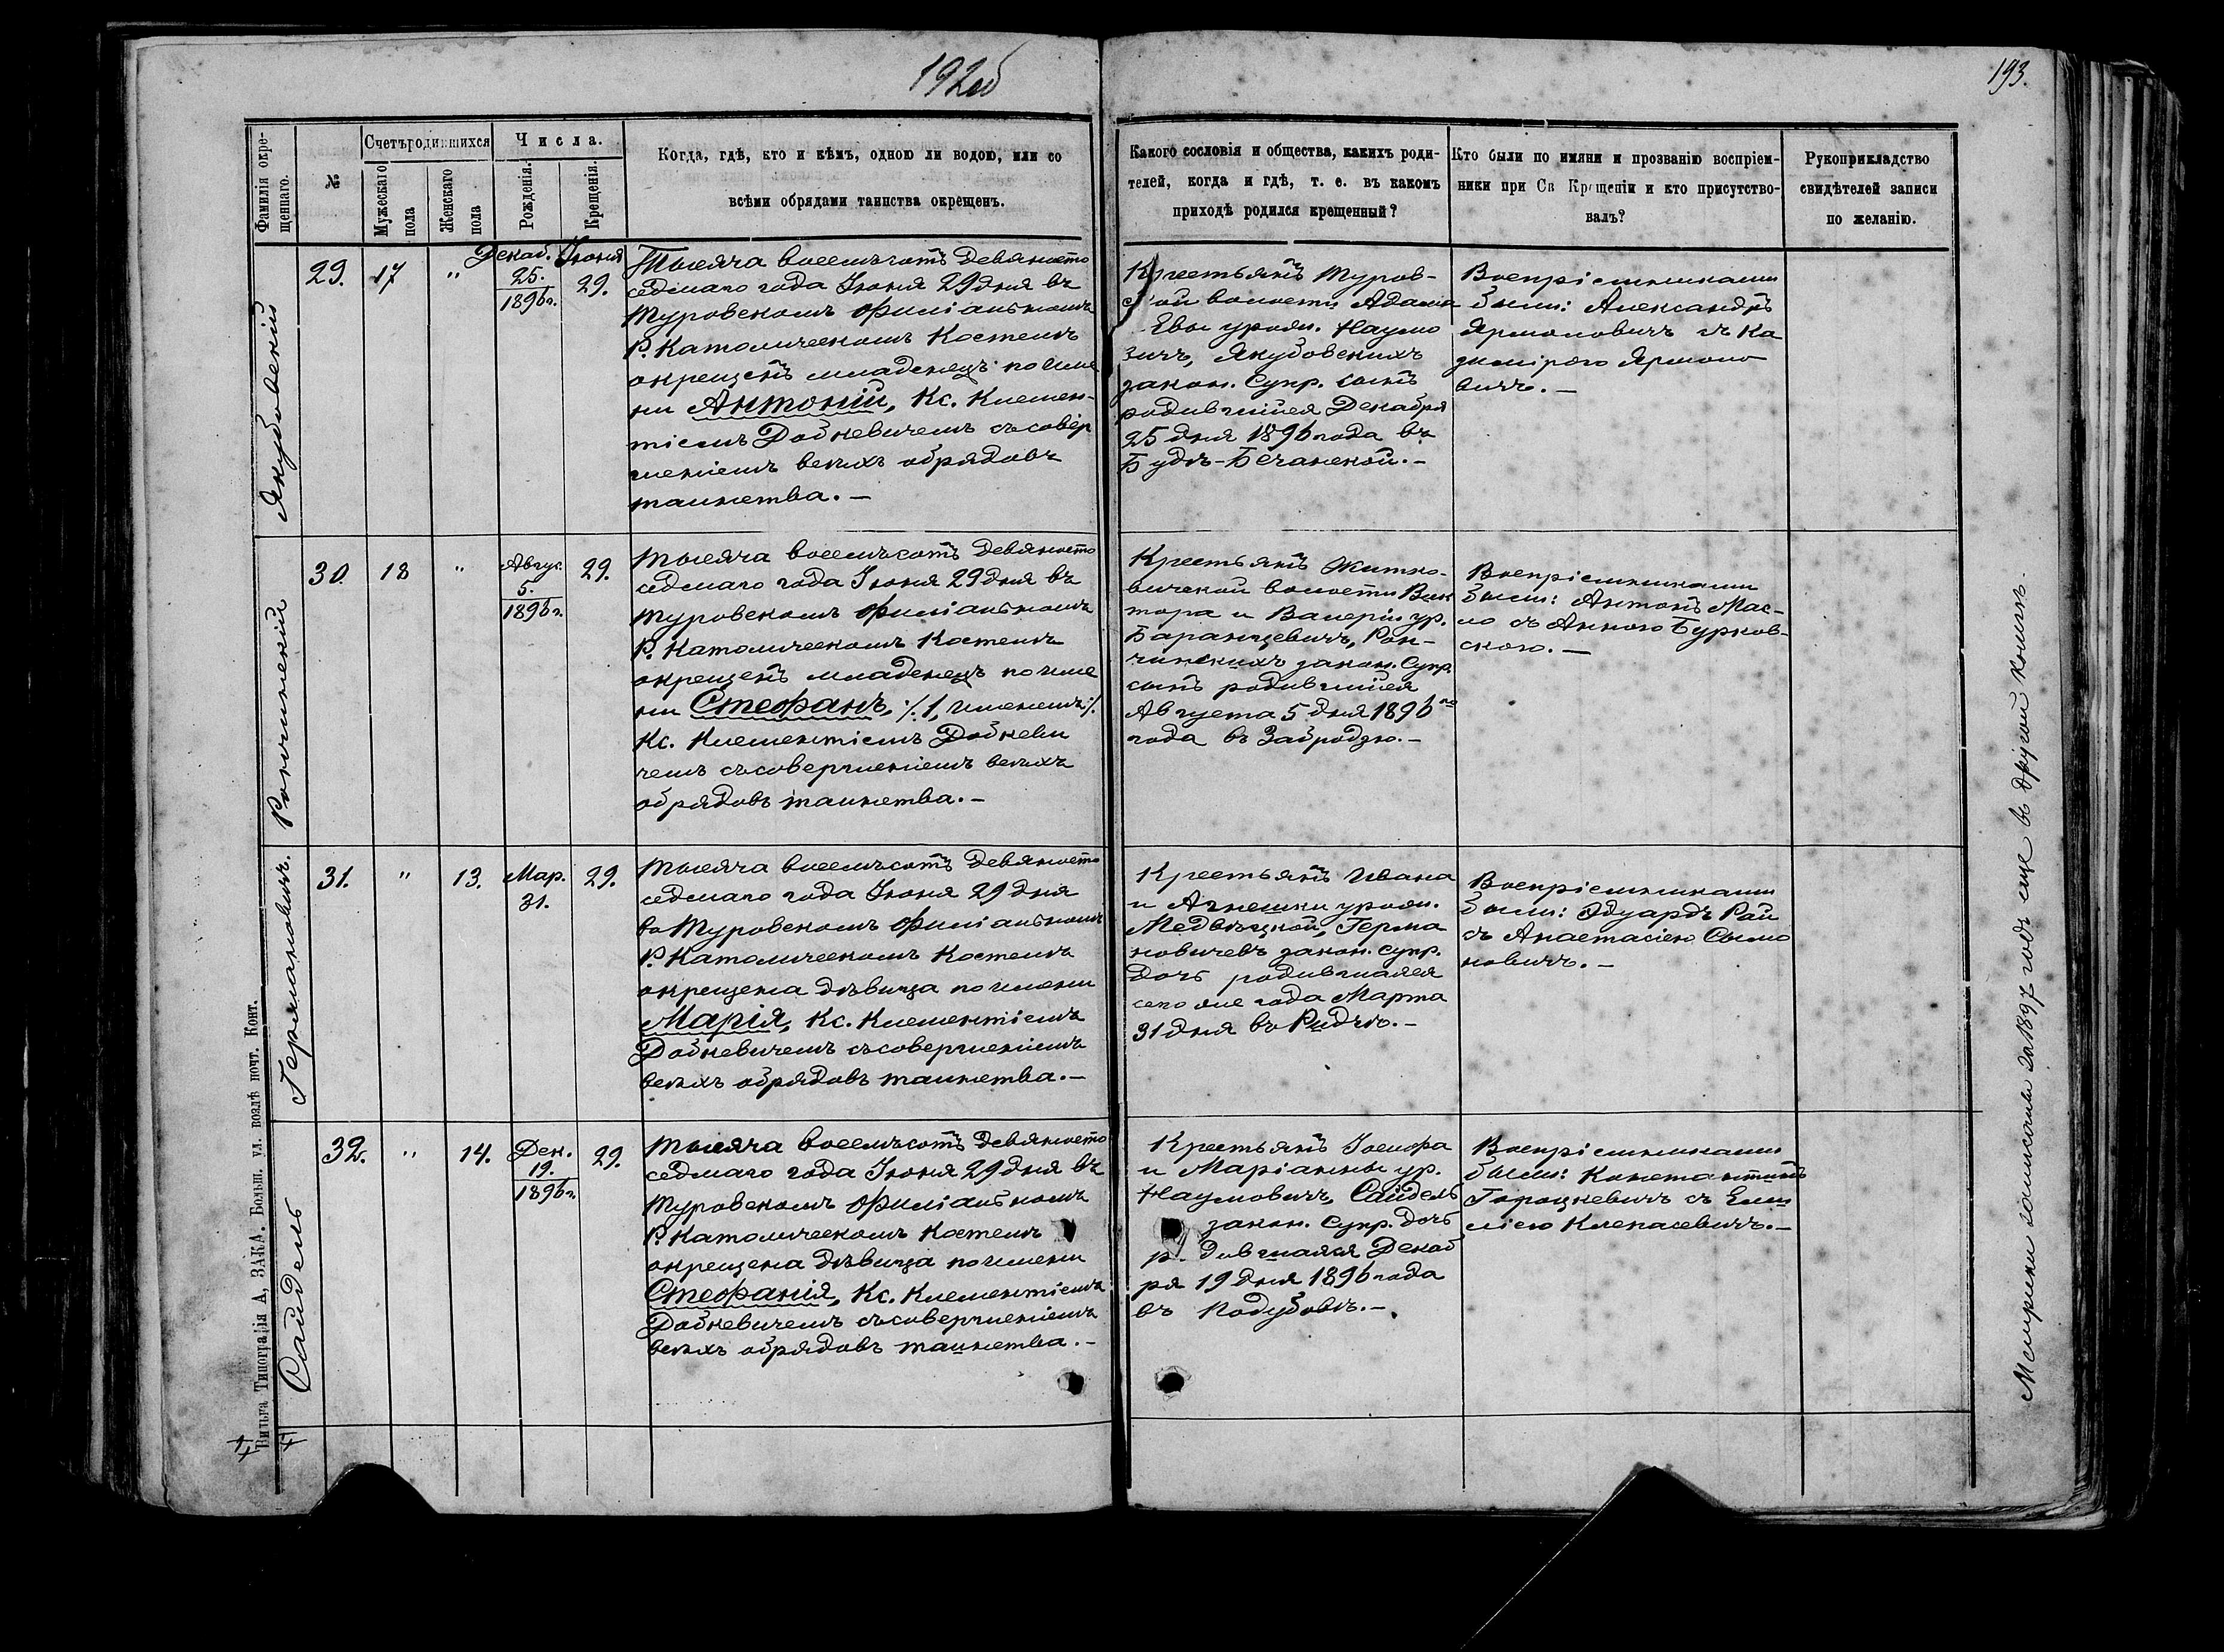 192об
193.
Фамилія окре-
щеннаго.
№
Счетъ родившихся
Мужескаго
пола
Женскаго
пола
Числа.
Рожденія.
Крещенія.
Когда, гдѣ, кто и кѣмъ, одною ли водою, или со
всѣми обрядами таинства окрещенъ.
Какого сословія и общества, какихъ роди-
телей, когда и гдѣ, т. е. въ какомъ
приходѣ родился крещенный?
Кто были по имяни и прозванію воспріем-
ники при Св Крещеніи и кто присутство-
валъ?
Рукоприкладство
свидѣтелей записи
по желанію.
Якубовскій
29.
17
"
Декаб.
25.
1896 г.
Іюня
29.
Тысяча восемьсотъ девяносто
седмаго года Іюня 29 дня въ
Туровскомъ Филіальномъ
Р. Католическомъ Костелѣ
окрещенъ младенецъ по име
ни Антоній, Кс. Клемен-
тіемъ Добкевичемъ съ совер
шеніемъ всѣхъ обрядовъ
таинства. —
Крестьянъ Туров-
ской волости Адама
Евы урожд. Наумо
вичъ, Якубовскихъ
закон. Супр. сынъ
родившійся Декабря
25 дня 1896 года въ
Будѣ-Бечанской. —
Воспріемниками
были: Александръ
Ярмоловичъ съ Ка
зимірою Ярмоло
вичъ. —
Рончинскій
30.
18
"
Авгус.
5.
1896 г.
29.
Тысяча восемьсотъ девяносто
седмаго года Іюня 29 дня въ
Туровскомъ Филіальномъ
Р. Католическомъ Костелѣ
окрещенъ младенецъ по име
ни Стефанъ, ·/. 1, именемъ ·/.
Кс. Клементіемъ Добкеви
чемъ съ совершеніемъ всѣхъ
обрядовъ таинства. —
Крестьянъ Житко-
вичской волости Вик
тора и Валеріи ур.
Баранцевичъ, Рон-
чинскихъ закон. Супр.
сынъ родившійся
Августа 5 дня 1896 го
года въ Забродзю. —
Воспріемниками
были: Антонъ Мас-
ло съ Анною Бурков-
скою. —
Германовичъ.
31.
"
13.
Мар.
31.
29.
Тысяча восемьсотъ девяносто
седмаго года Іюня 29 дня
во Туровскомъ Филіальномъ
Р. Католическомъ Костелѣ
окрещена дѣвица по имени
Марія, Кс. Клементіемъ
Добкевичемъ съ совершеніемъ
всѣхъ обрядовъ таинства. —
Крестьянъ Ивана
и Агнешки урожд.
Медвѣцкой, Герма
новичевъ закон. супр.
дочь родившаяся
сего же года Марта
31 дня въ Ридчѣ. —
Воспріемниками
были: Эдуардъ Рай
съ Анастасіею Сымо
новичъ. —
Сайдель
32.
"
14.
Дек.
19.
1896 г.
29.
Тысяча восемьсотъ девяносто
седмаго года Іюня 29 дня въ
Туровскомъ Филіальномъ
Р. Католическомъ Костелѣ
окрещена дѣвица по имени
Стефанія, Кс. Клементіемъ
Добкевичемъ съ совершеніемъ
всѣхъ обрядовъ таинства. —
Крестьянъ Іосифа
и Маріанны ур.
Наумовичъ, Сайдель
закон. Супр. дочь
р дившаяся Декаб
ря 19 дня 1896 года
въ Подубовѣ. —
Воспріемниками
были: Константинъ
Горошкевичъ съ Еми
ліею Клепасевичъ. —
Вильна Типографія А, ЗАКА. Больш. ул. возлѣ почт. Конт.
Метрики записаны за 1897 годъ еще въ другой книгѣ.